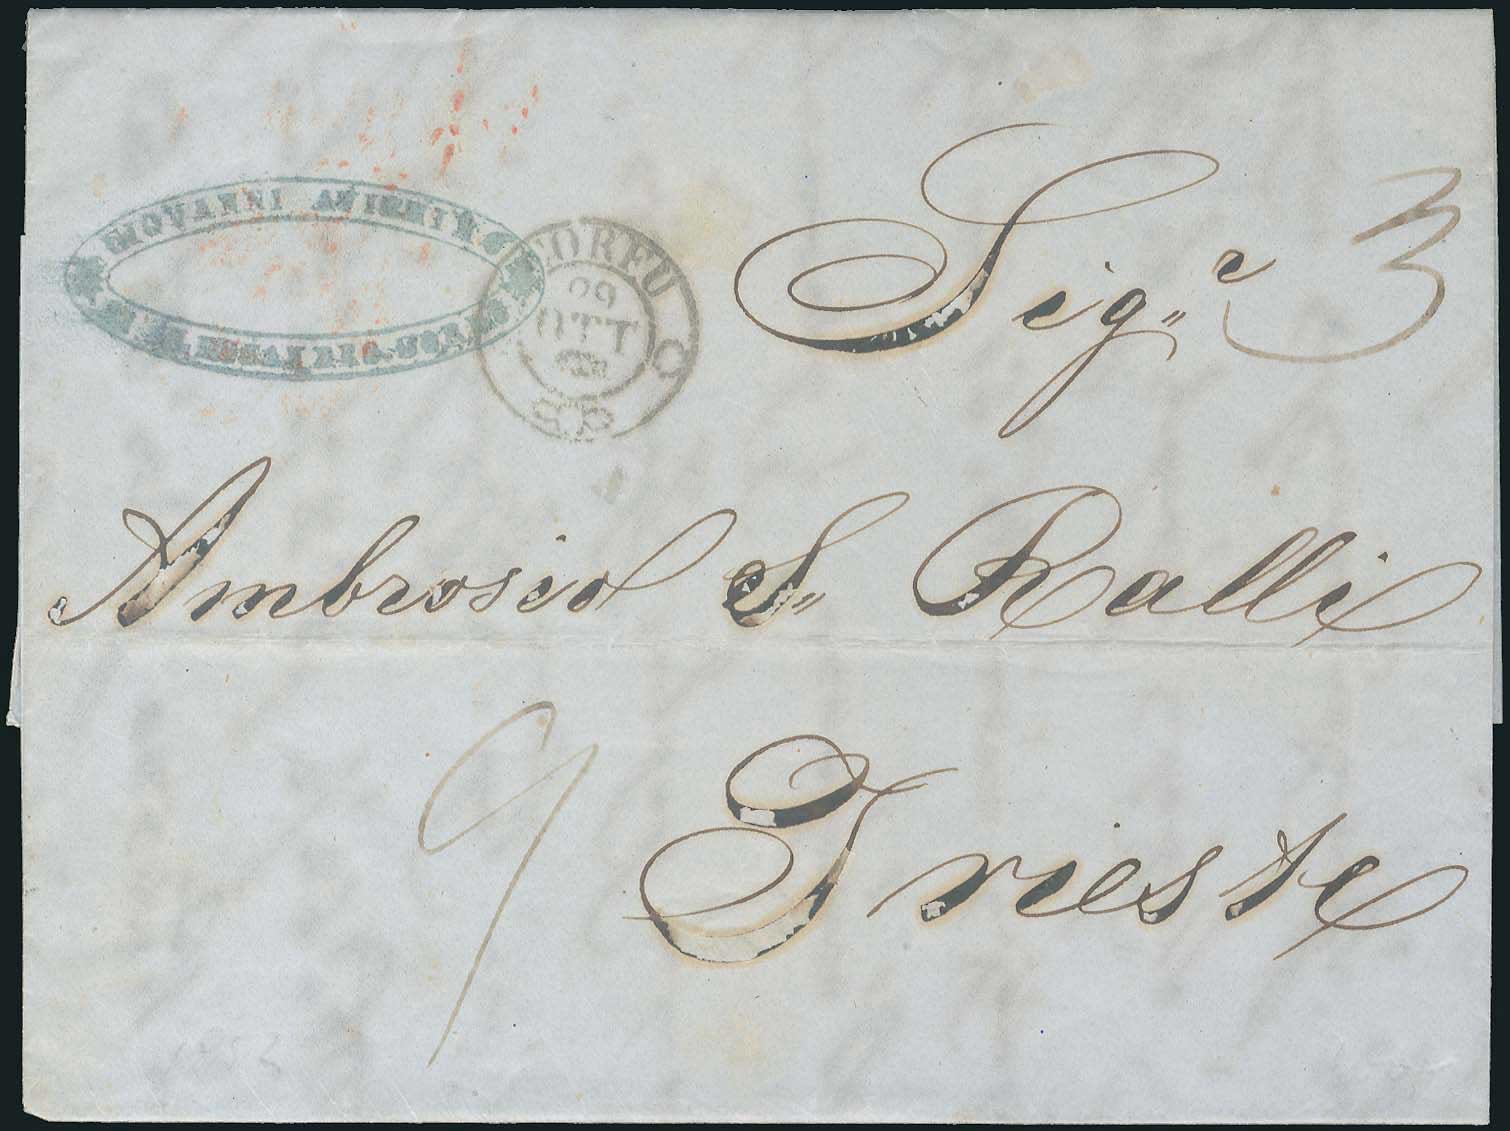 GIOVANNI
CORFU
29
OTT
Sig.,e
3
Ambrosio S., Ralli
9
Trieste